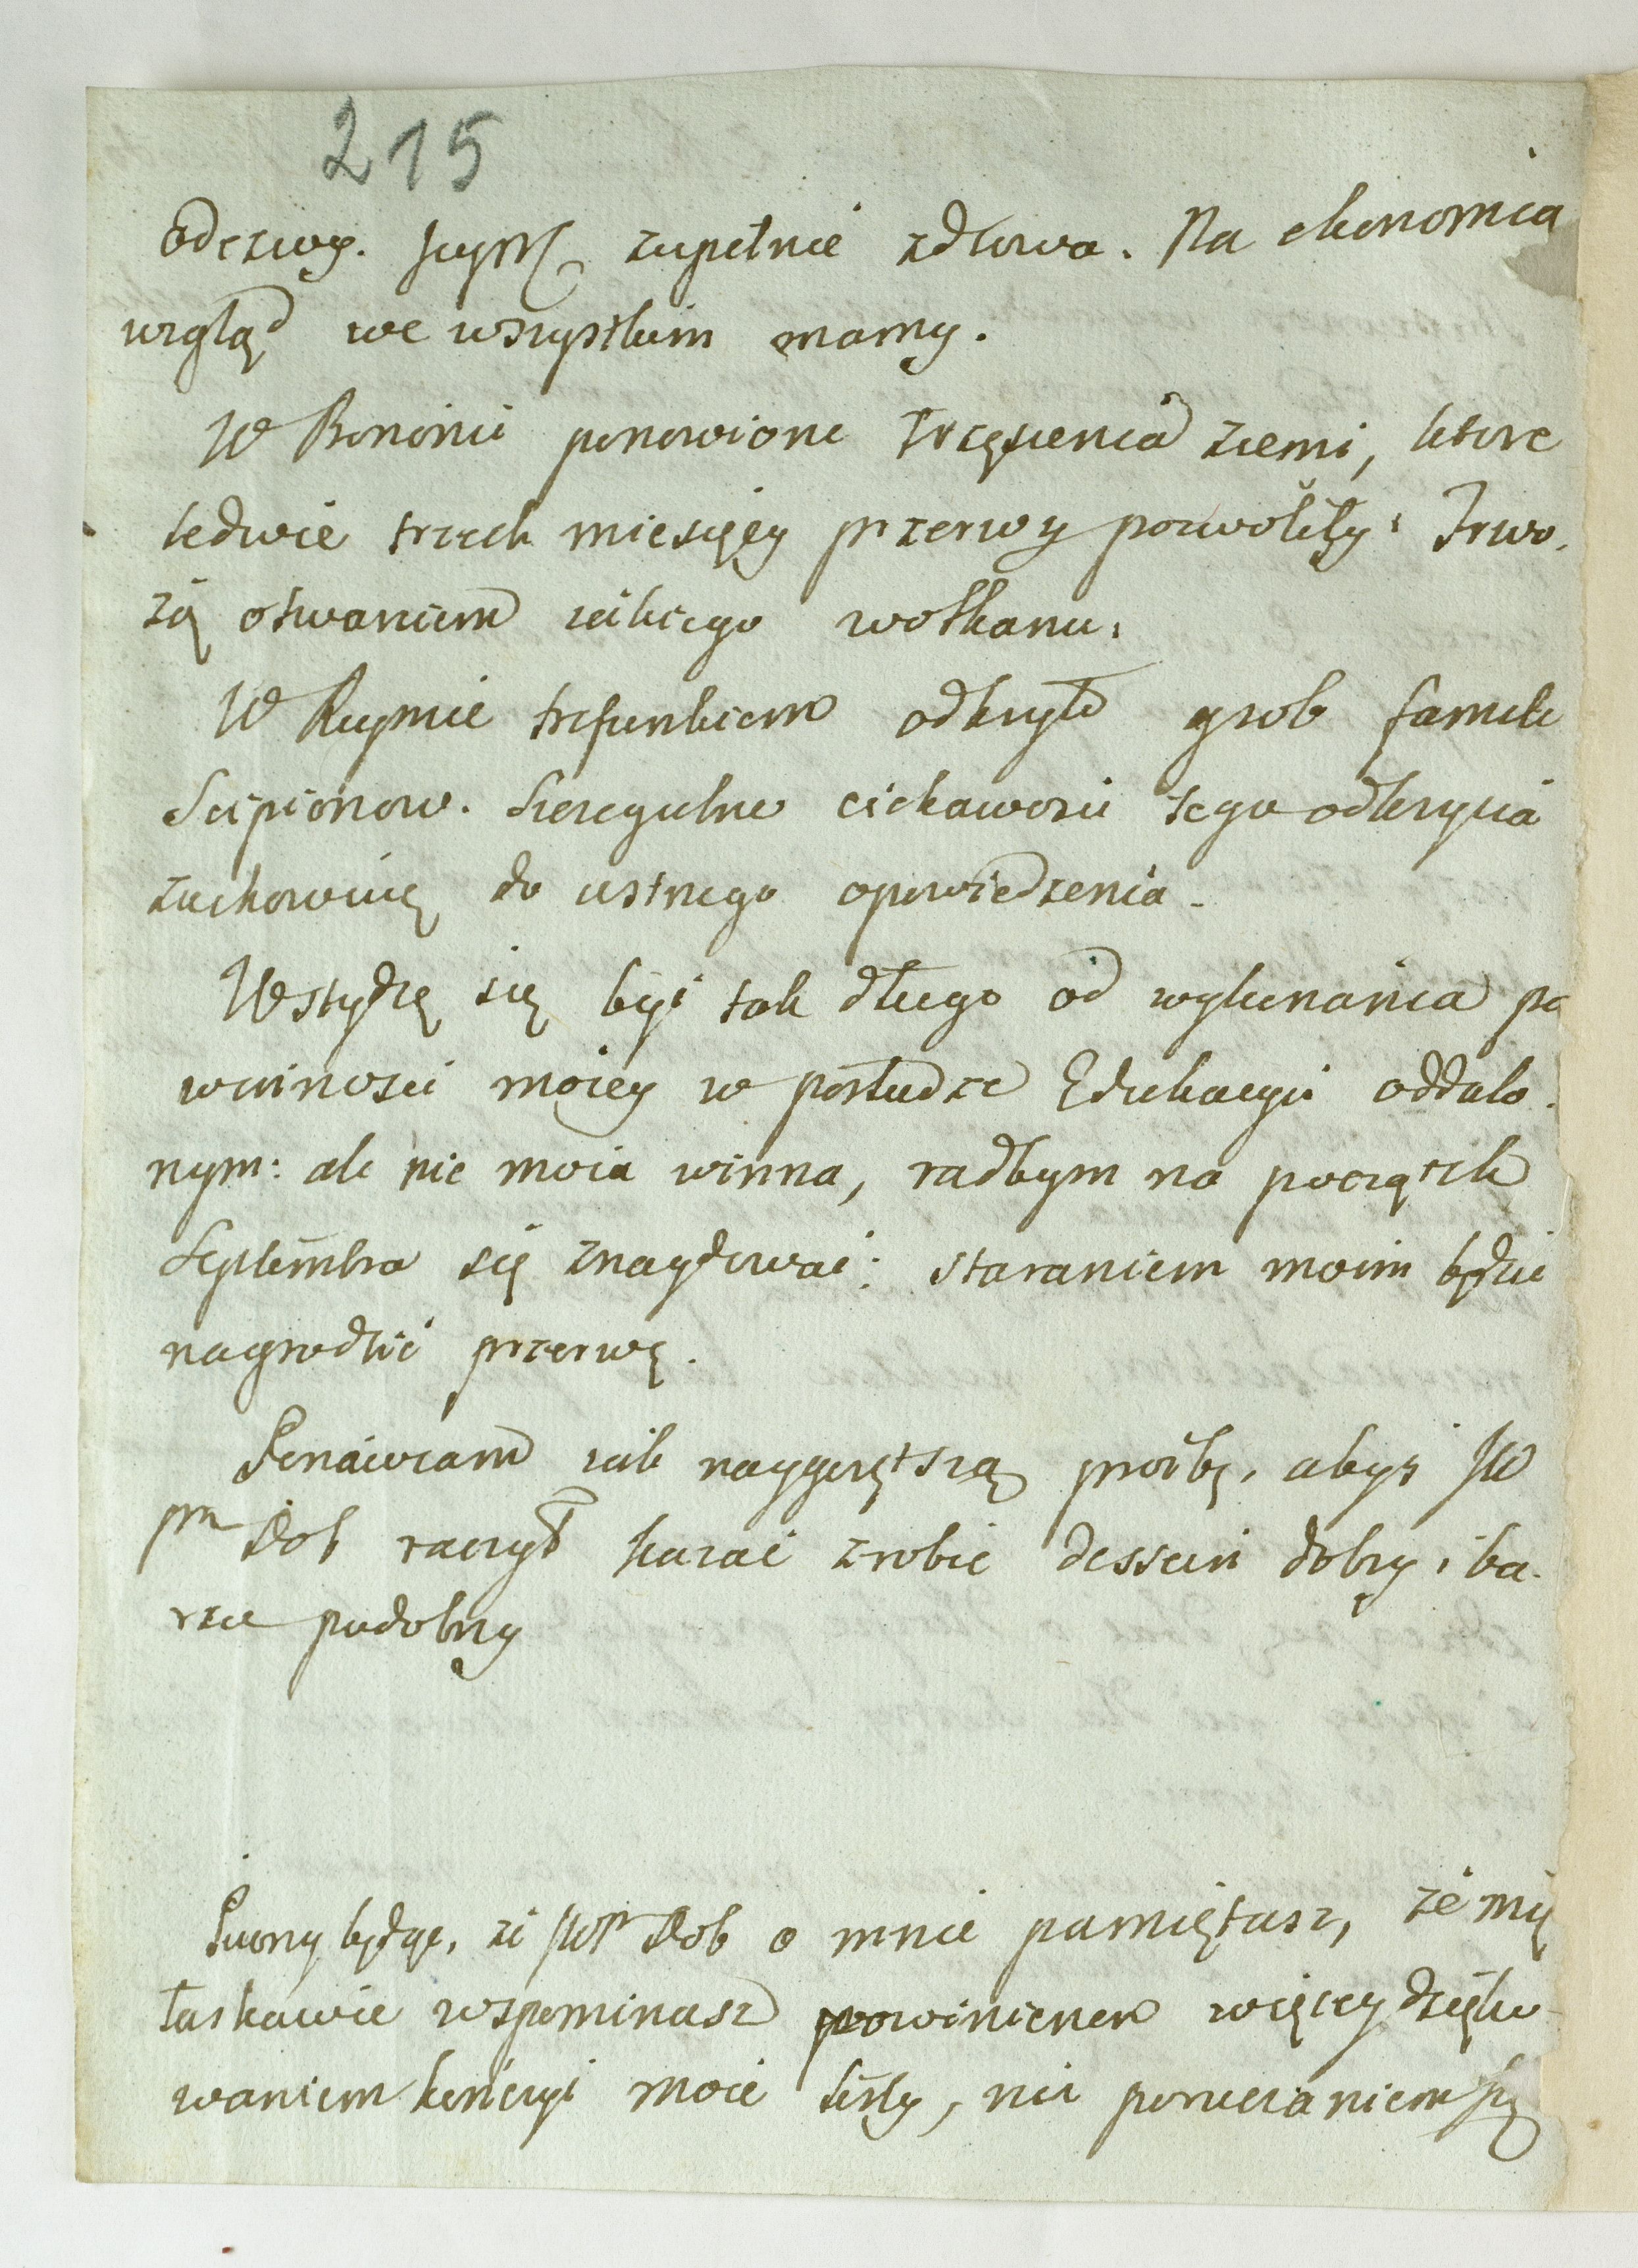 215
odezwy. zupełnie zdrowa. Na ekonomia
wzgląd we wszystkim mamy.
W Bononii ponowione trzęsienia ziemi, ktore
ledwie trzech miesięcy przerwy pozwoliły: Trwo,
żą otwarciem iakiego wołkanu.
W Rzymie trefunkiem odkryto grob familii
Scipionow. Szczegulne ciekawości tego odkrycia
zachowuię do ustnego opowiedzenia.
Wstydzę się być tak długo od wykonania po
winności moiey w posłudze Edukacyi oddalo.
nym: ale nie moia winna, radbym na początek
Septembra się znaydować: staraniem moim będzie
nagrodzić przerwę.
Ponawiam iak naygorętszą prozbę, abyś JW
Pn Dob raczył kazać zrobić dessein dobry, i ba.
rzo podobny
Pewny będąc, że JWP Dob o mnie pamiętasz, że mię
łaskawie wspominasz powinienem więcey dzięko
waniem kończyć moie listy, niż polecaniem się